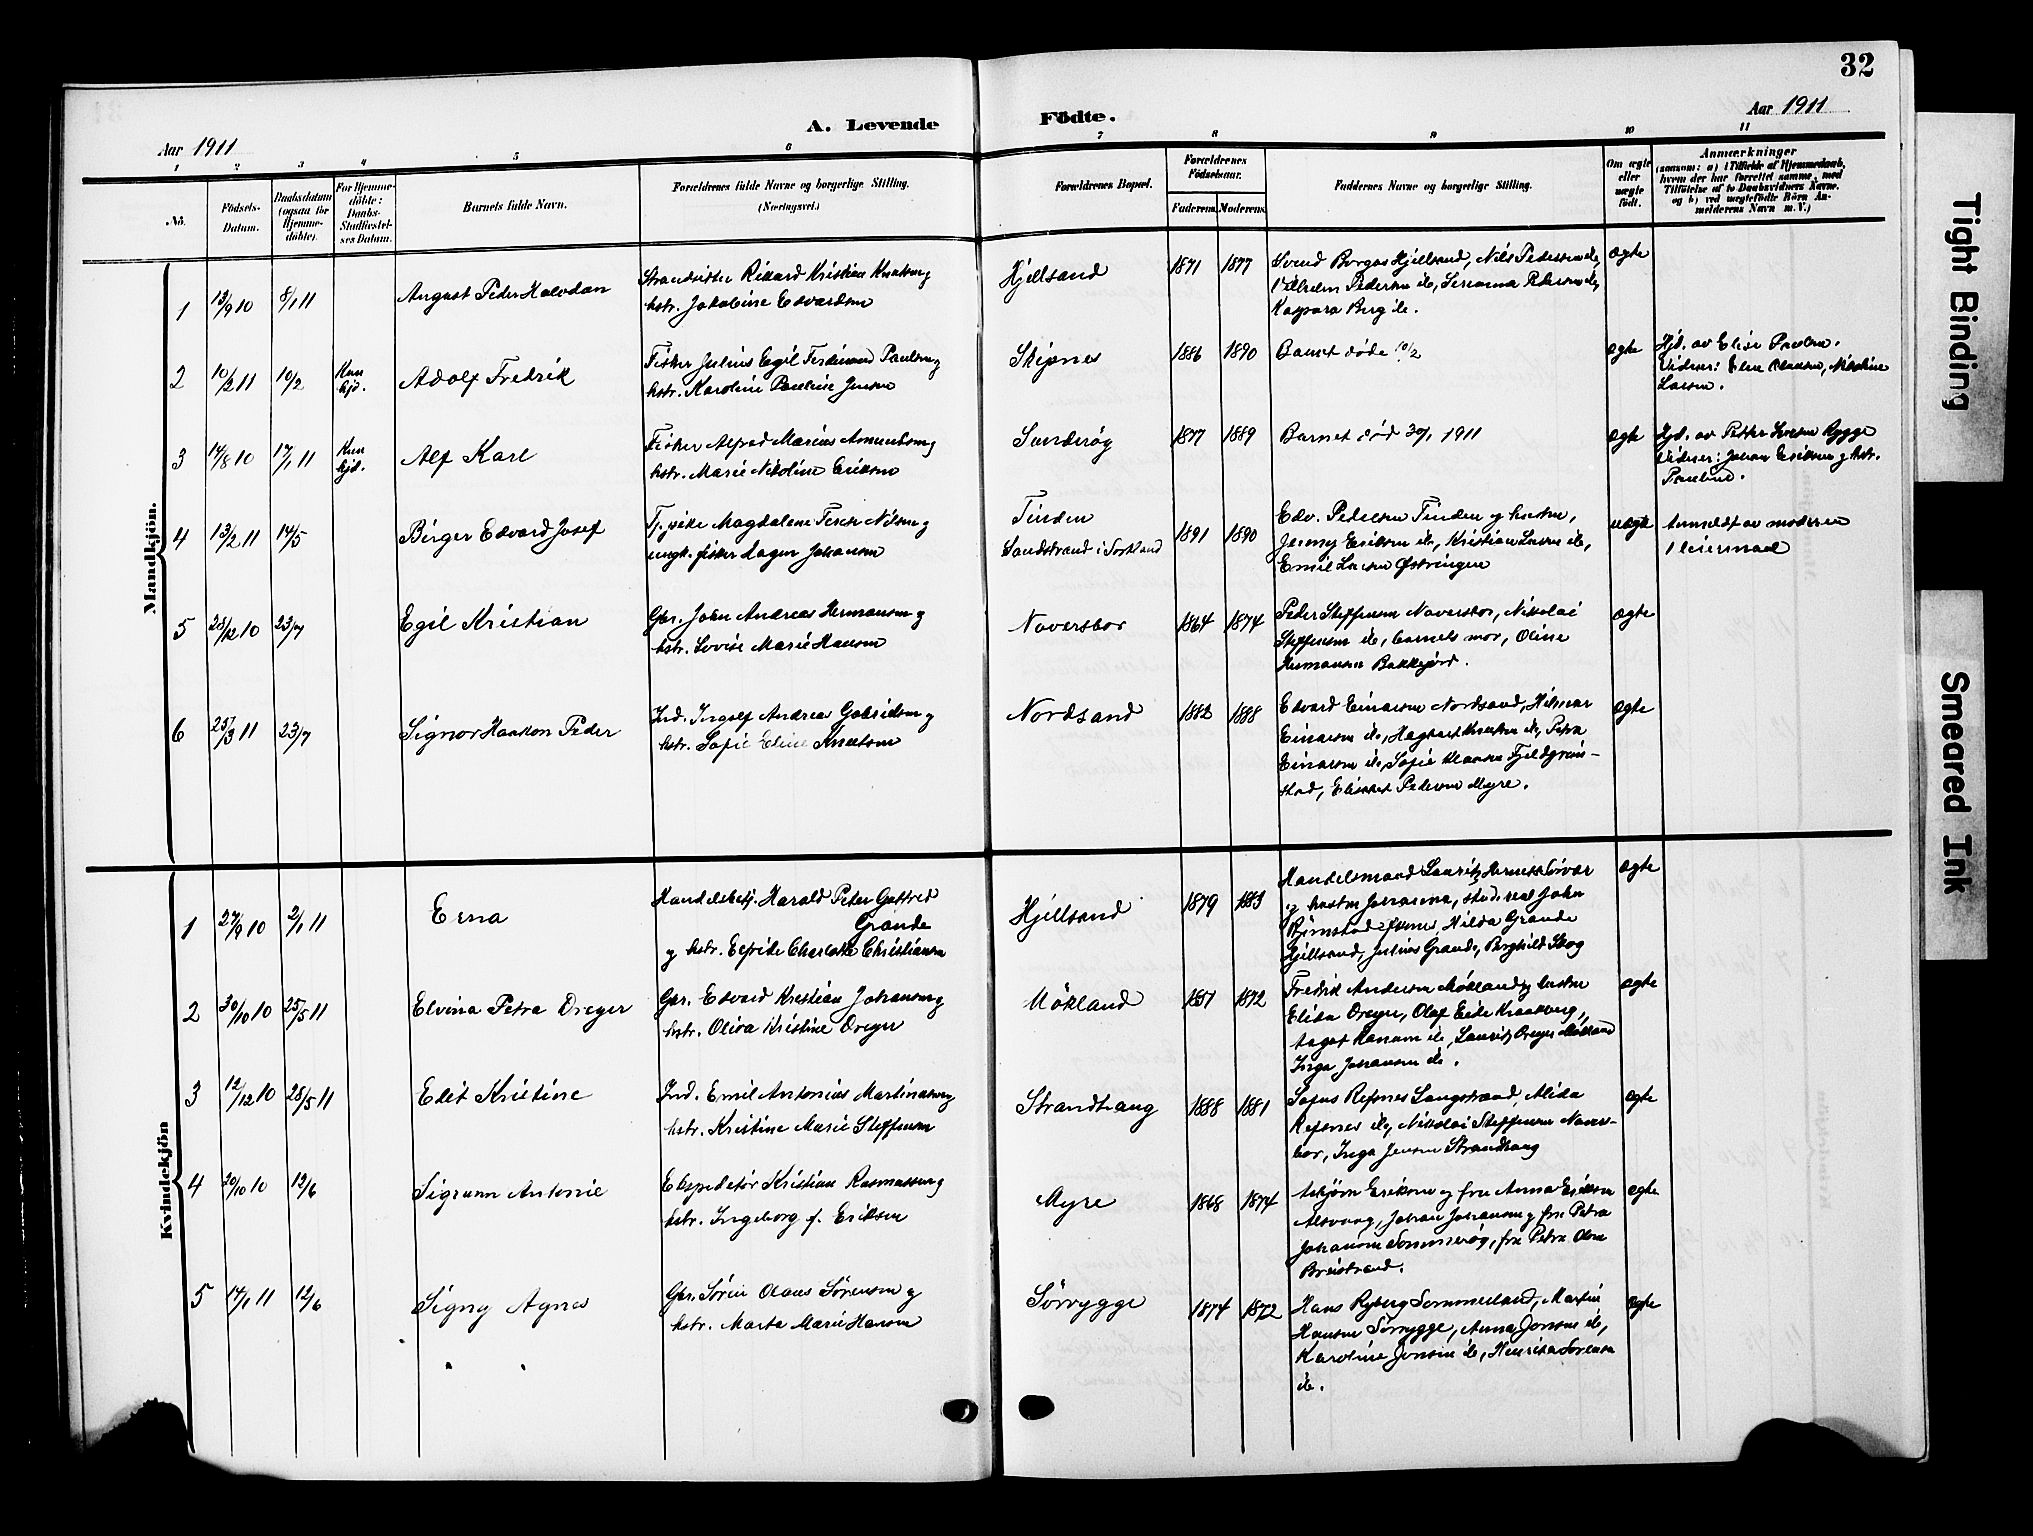 32
Aar 1911
A. Levende Födte.
Aar 1911
1 2 3 4 5 6 7 8 9 10 11
No.
Födsels-Datum.
Daabsdatum (ogsaa for Hjemme-döbte).
For Hjemme-döbte: Daabs-Stadfæstel-ses Datum.
Barnets fulde Navn.
Forældrenes fulde Navne og borgerlige Stilling.
(Næringsvei.)
Forældrenes Bopæl.
Forældrenes Födselsaar.
Faderens. Moderens.
Faddernes Navne og borgerlige Stilling.
Om ægte eller uægte födt.
Anmærkninger
(saasom: a) i Tilfælde af Hjemmedaab,
hvem der har forrettet samme, med
Tilföielse af to Daabsvidners Navne,
og b) ved uægtefödte Börn An-
melderens Navn m. V.)
Mandkjön.
1 13/9 10 8/1 11 August Peder Halvdan
Strandsidder Rikard Kristian Knutsen og
hstr. Jakobine Edvardsen
Hjellsand 1871 1877
Svend Borgos Hjellsand, Nils Pedersen do,
Vilhelm Pedersen do, Serianna Pedersen do,
Kaspara Berg do.
ægte
2 10/2 11 10/2 Kun hjd. Adolf Fredrik
Fisker Julius Egil Ferdinand Paulsen og
hstr. Karoline Pauline Jensen
Skipnes 1886 1890
Barnet døde 10/2
ægte
Hjd. av Elise Paulsen.
Vidner: Eline Olausen,
Larsen.
3 14/8 10 17/1 11 Kun hjd. Alf Karl
Fisker Alfred Marius Amundsen og
hstr. Marie Nikoline Eriksen
Sanderøg 1877 1889
Barnet død 30/1 1911
ægte
Hjd. av Petter Rygge
Vidner: Johan Eriksen og hstr.
Pauline.
4 13/2 11 14/5 Birger Edvard Josef
Tj.pike Magdalene Nilsen og
ungk. fisker Johansen
Tinden
Sandstrand i Sortland
1891 1890
Edv. Pedersen Tinden og hustru,
Jenny Eriksen do, Kristian Larsen do,
Emil Larsen Østringen
uægte
Anmeldt av moderen
1 leiermaal
5 28/12 10 23/7 Egil Kristian
Gbr. Johan Andreas Hermansen og
hstr. Lovise Marie Hansen
Naverstor 1864 1874
Peder Steffensen Naverstor, Nikolai
Steffensen do, barnets mor, Oline
Hermansen Bakkejord.
ægte
6 25/3 11 23/7 Signor Haakon Peder
Ind. Ingolf Andrea Gabrielsen og
hstr. Sofie Eline Knutsen
Nordsand 1882 1888
Edvard Einarsen Nordsand, Hilmar
Einarsen do, Hagbart Knutsen do, Petra
Einarsen do, Sofie Hansen Fjeldgren-
stad, Elisabet Pedersen Myre.
ægte
Kvindekjön
1 27/9 10 2/1 11 Erna
Handelsbetj. Harald Peter Gotfred
Grande
og hstr. Elfride Charlotte Christiansen
Hjellsand 1879 1883
Handelsmand Lauritz
og hustru Johanna, stud. real John
Rimstad, Hilda Grande
Hjellsand, Julius Grande, Borghild Skog
ægte
2 30/10 10 25/5 11 Elvina Petra Dreyer
Gbr. Edvard Kristian Johansen og
hstr. Oliva Kristine Dreyer
Mökland 1857 1872
Fredrik Andersen Mökland og hustru
Elida Dreyer, Olaf Eide Kraakberg,
Aagot Hansen do, Lauritz Dreyer Mökland
Inga Johansen do.
ægte
3 12/12 10 28/5 11 Edit Kristine
Ind. Emil Antonius Martinussen og
hstr. Kristine Marie Steffensen
Strandhaug 1888 1881
Sofus Refsnes Langstrand, Alida
Refsnes do, Nikolai Steffensen Navers-
tor, Inga Jensen Strandhaug
ægte
4 20/10 10 12/6 Sigrunn Antonie
Ekspeditör Kristian Rasmussen og
hstr. Ingeborg f. Eriksen
Myre 1868 1874
Asbjörn Eriksen og fru Anna Eriksen
Alsvaag, Johan Johansen og fru Petra
Johansen Sommerøg, fru Petra Olsen
Breistrand.
ægte
5 14/1 11 12/6 Signy Agnes
Gbr. Sören Olaus Sörensen og
hstr. Marta Marie Hansen
Sörrygge 1874 1872
Hans Ryberg Sommerland, Martin
Hansen Sörrygge, Anna Jensen do,
Karoline Jensen do, Henrikka Sörensen
do.
ægte
Tight Binding
Smeared Ink